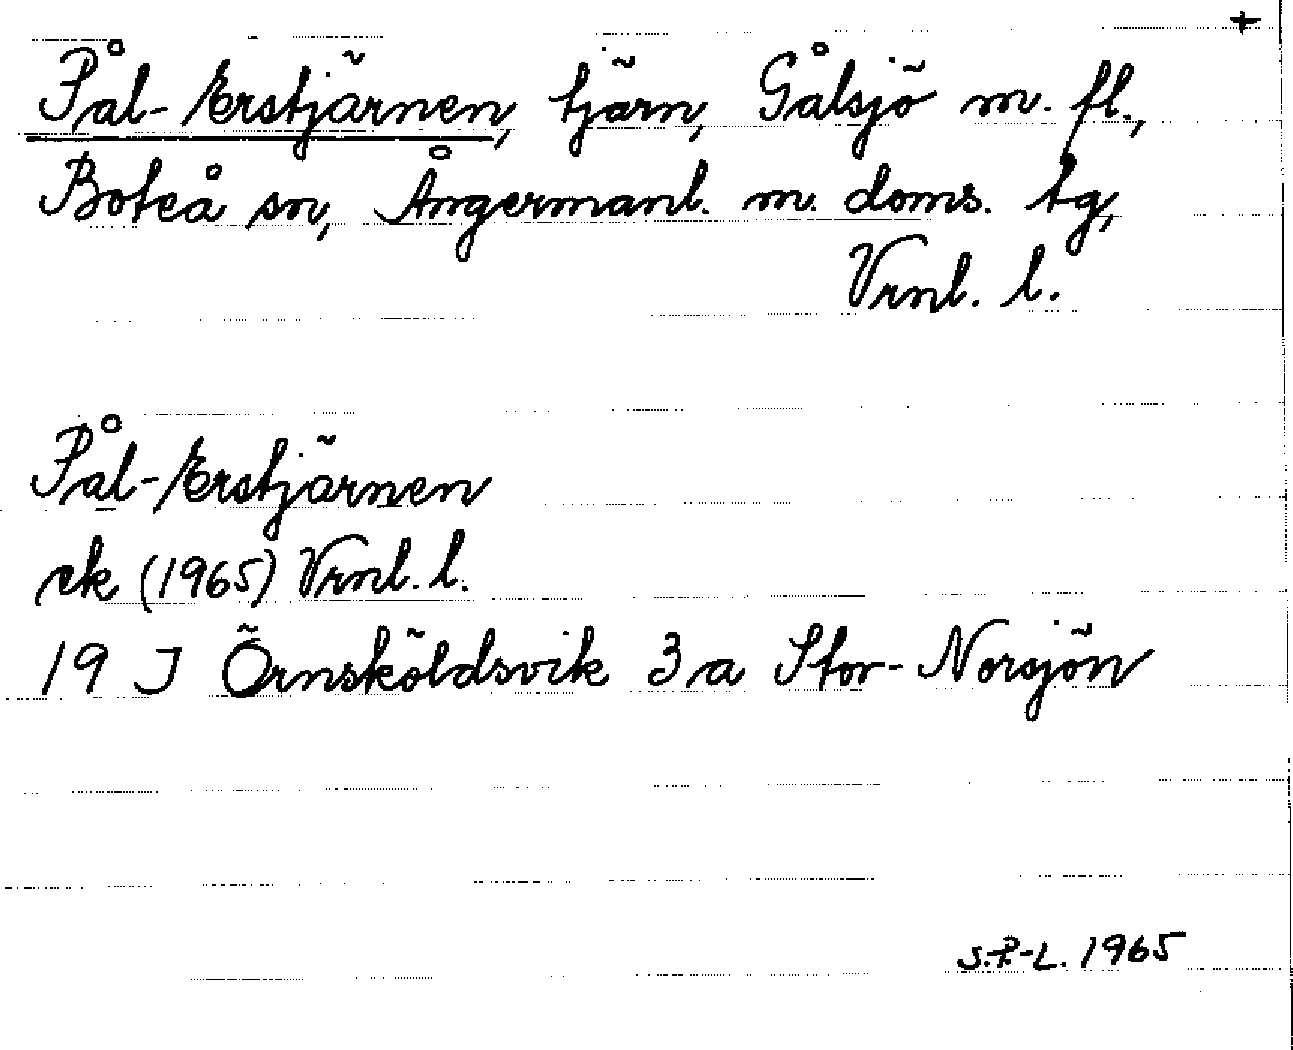 +
Pål-Erstjärnen, tjärn, Gålsjö m. fl.,
Boteå sn, Ångermanl. m. doms. tg,
Vrnl. l.
Pål-Erstjärnen
ek (1965) Vrnl. l.
19 J Örnsköldsvik 3 a Stor-Norsjön
S.P-L. 1965